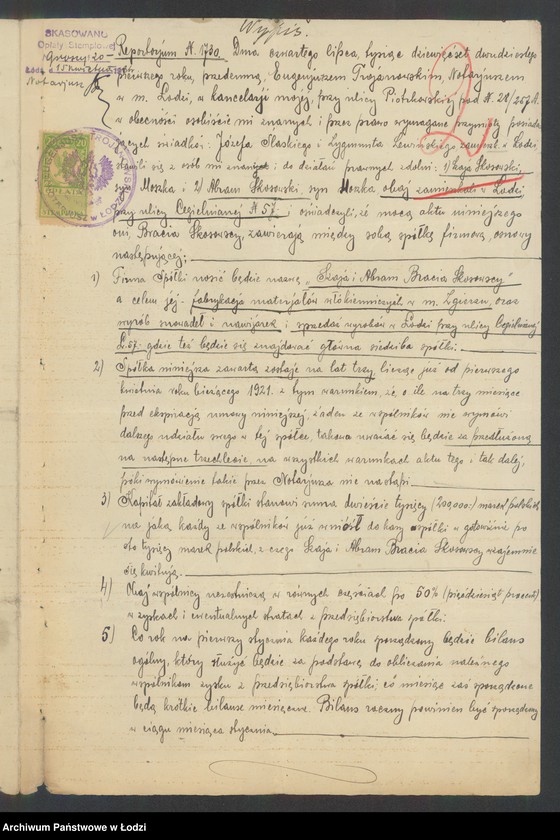 Wypis.
SKASOWANO
Opłaty Stemplowej
Groszy 20-
Notarjusz
Repertorjum N. 1730. Dnia czwartego lipca, tysiąc dziewięćset dwudziestego
pierwszego roku, przedemną, Eugenjuszem Trojanowskim, Notarjuszem
w m. Łodzi, w kancelarji mojej, przy ulicy Piotrkowskiej pod N.
w obecności osobiście mi znanych i przez prawo wymagane przymioty posiada-
jących świadków: Józefa Slaskiego i Zygmunta Lewińskiego zamieszk. w Łodzi,
stawili się z osób mi znani i do działań prawnych zdolni: 1/ Szaja Skosowski,
syn Moszka i 2/ Abram Skosowski, syn Moszka obaj zamieszkali w Łodzi
przy ulicy Cegielnianej N 57. i oświadczyli, że mocą aktu niniejszego
oni, Bracia Skosowscy, zawierają między sobą spółkę firmową, osnowy
następującej:
1) Firma Spółki nosić będzie nazwę "Szaja i Abram Bracia Skosowscy"
a celem jej - fabrykacja materjałów włókienniczych w m. Zgierzu, oraz
wyrób snowadeł i nawijarek i sprzedaż wyrobów w Łodzi przy ulicy Cegielnianej
N.57. gdzie też będzie się znajdować główna siedziba spółki.
2) Spółka niniejsza zawartą zostaje na lat trzy, licząc już od pierwszego
kwietnia roku bieżącego 1921. z tym warunkiem, że, o ile na trzy miesiące
przed ekspiracją umowy niniejszej, żaden ze wspólników nie wymówi
dalszego udziału swego w tej spółce, takowa uważać się będzie za przedłużoną
na następne trzechlecie, na wszystkich warunkach aktu tego i tak dalej,
póki wymówienie takie przez Notarjusza nie nastąpi.
3) Kapitał zakładowy spółki stanowi suma dwieście tysięcy /200,000:/ marek polskich,
na jaką każdy ze wspólników już wniósł do kasy spółki w gotowiźnie po
sto tysięcy marek polskich, z czego Szaja i Abram Bracia Skosowscy wzajemnie
się kwitują.
4) Obaj wspólnicy uczestniczą w równych częściach po 50% /pięćdziesiąt procent/
w zyskach i ewentualnych stratach z przedsiębiorstwa spółki.
5) Co rok na pierwszy stycznia każdego roku sporządzany będzie bilans
ogólny, który służyć będzie za podstawę do obliczania należnego
wspólnikom zysku z przedsiębiorstwa spółki; co miesiąc zaś sporządzane
będą krótkie bilanse miesięczne. Bilans roczny powinien być sporządzony
w ciągu miesiąca stycznia.
Archiwum Państwowe w Łodzi